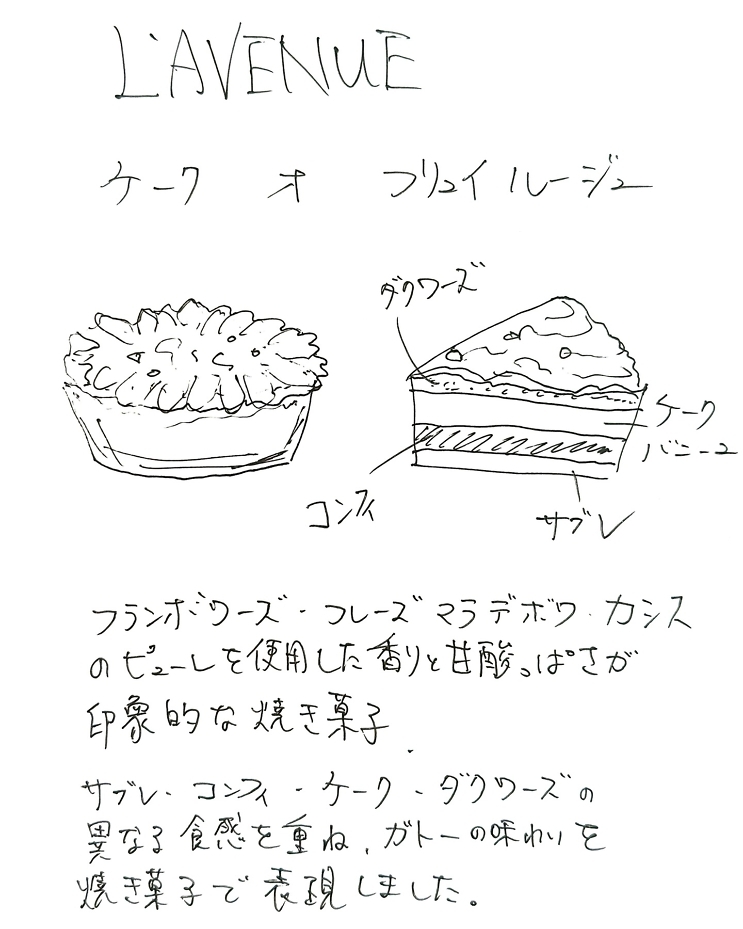 L'AVENUE
ケーク オ フリュイ ルージュ
ダクワーズ
ケーク
バニーユ
コンフィ
サブレ
フランボワーズ・フレーズ マラ デ ボワ・カシス
のピューレを使用した香りと甘酸っぱさが
印象的な焼き菓子.
サブレ・コンフィ・ケーク・ダクワーズの
異なる食感を重ね、ガトーの味わいを
焼き菓子で表現しました。